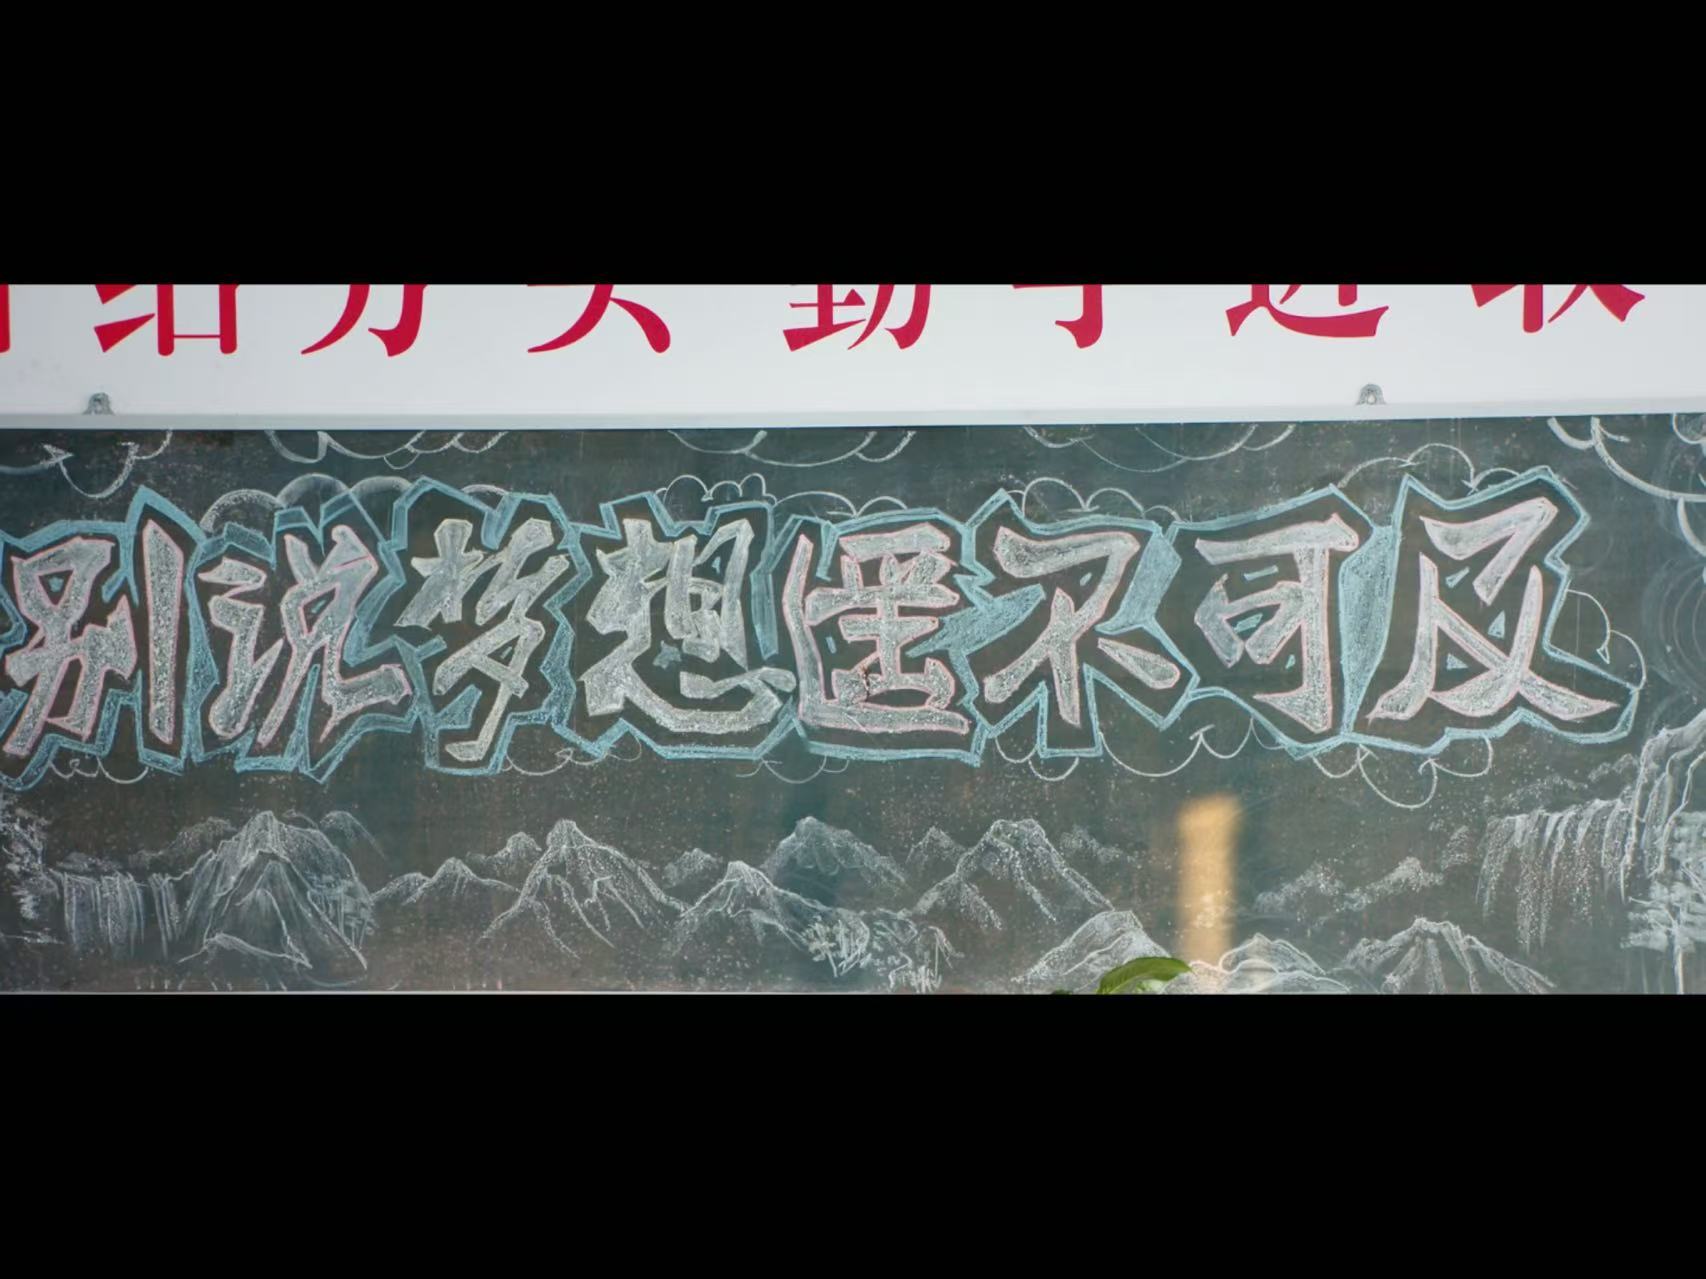 结务实 勤学进取
别说梦想遥不可及